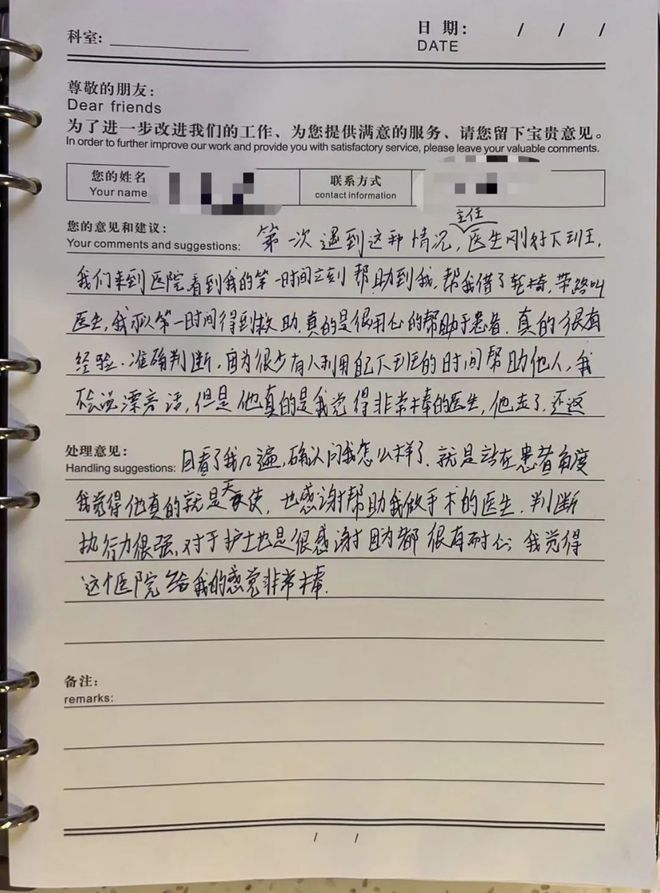 科室:
日 期: / / /
DATE
尊敬的朋友:
Dear friends
为了进一步改进我们的工作、为您提供满意的服务、请您留下宝贵意见。
In order to further improve our work and provide you with satisfactory service, please leave your valuable comments.
您的姓名
Your name
联系方式
contact information
您的意见和建议:
主任
Your comments and suggestions: 第一次遇到这种情况,医生刚好下班,
我们来到医院看到我的第一时间立刻帮助到我,帮我借了轮椅,带路叫
医生,我从第一时间得到救助,真的是很用心的帮助于患者,真的很有
经验,准确判断,因为很少有人利用自己下班的时间帮助他人,我
不会说漂亮话,但是他真的是我觉得非常棒的医生,他走了,还返
处理意见:
Handling suggestions: 回看了我几遍,确认问我怎么样了,就是站在患者角度
我觉得他真的就是天使,也感谢帮助我做手术的医生,判断
执行力很强,对于护士也是很感谢因为都很有耐心,我觉得
这个医院给我的感觉非常棒.
备注:
remarks:
/ /